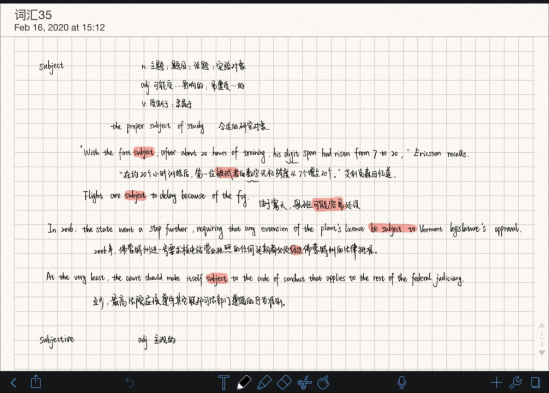 词汇35
Feb 16, 2020 at 15:12
subject n. 主题；题目；话题；实验对象
adj. 可能受…影响的，易遭受…的
v. 使
the proper subject of study 合适的研究对象
"With the first subject, after about 20 hours of training, his digit span had risen from 7 to 20," Ericsson recalls.
"在约20个小时训练后，第一位被试者的数字记忆跨度从7个增至20个，"艾利克森回忆道。
Flights are subject to delay because of the fog. 由于雾天，航班可能容易延误
In 2006, the state went a step further, requiring that any extension of the plant's licence be subject to Vermont legislature's approval.
2006年，佛蒙特州进一步要求核电站营业执照的任何延期都必须经过佛蒙特州的法律批准。
At the very least, the court should make itself subject to the code of conduct that applies to the rest of the federal judiciary.
至少，最高法院应该遵守其它联邦司法部门遵循的行为准则。
subjective adj. 主观的